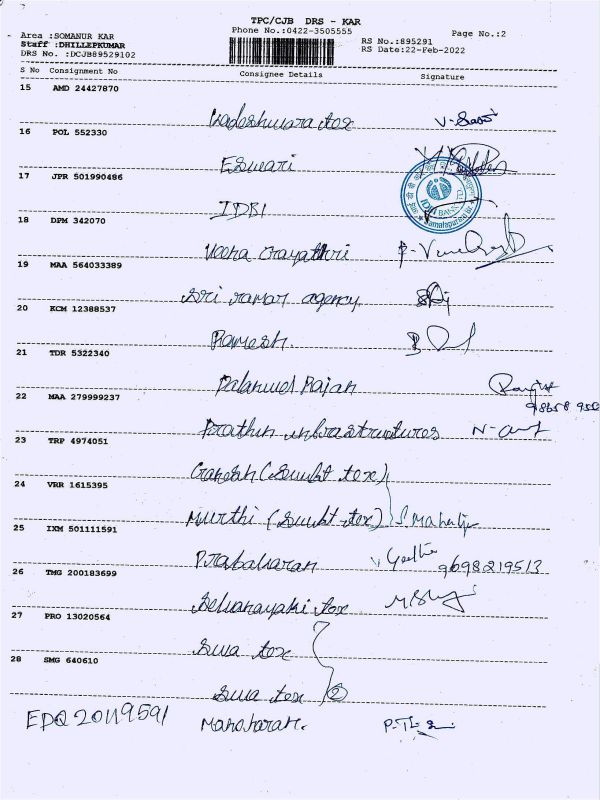 TPC/CJB DRS - KAR
Area :SOMANUR KAR Phone No.:0422-3505555 Page No.:2
Staff :DHILLEPKUMAR RS No.:895291
DRS No. :DCJB89529102 RS Date:22-Feb-2022
S No Consignment No Consignee Details Signature
15 AMD 24427870
Vadeshwara tex
16 POL 552330
Eswari
17 JPR 501990486
IDBI
18 DPM 342070
Veera Gayathri
19 MAA 564033389
Sri ramar agency
20 KCM 12388537
Ramesh.
21 TDR 5322340
Palanivel Rajan
22 MAA 279999237
Prathin infrastructures
23 TRP 4974051
Ganesh (Sumbt tex)
24 VRR 1615395
Murthi (Sumbt tex)
25 IXM 501111591
Prabakaran 9698219513
26 TMG 200183699
Selvanayaki tex
27 PRO 13020564
Siva tex
28 SMG 640610
Siva tex 2
EDQ 20119591 Manoharan.